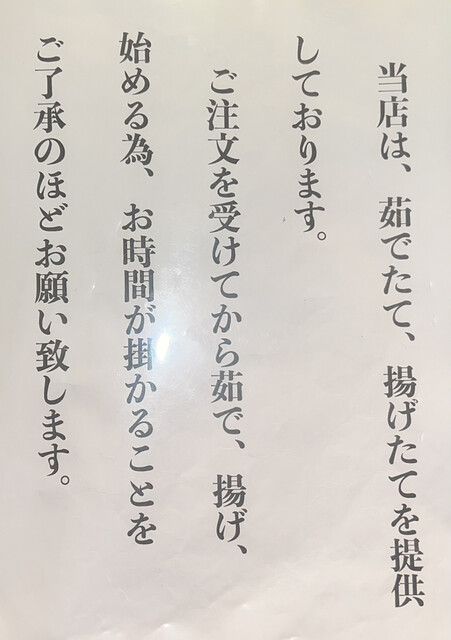 当店は、茹でたて、揚げたてを提供
しております。
ご注文を受けてから茹で、揚げ、
始める為、お時間が掛かることを
ご了承のほどお願い致します。